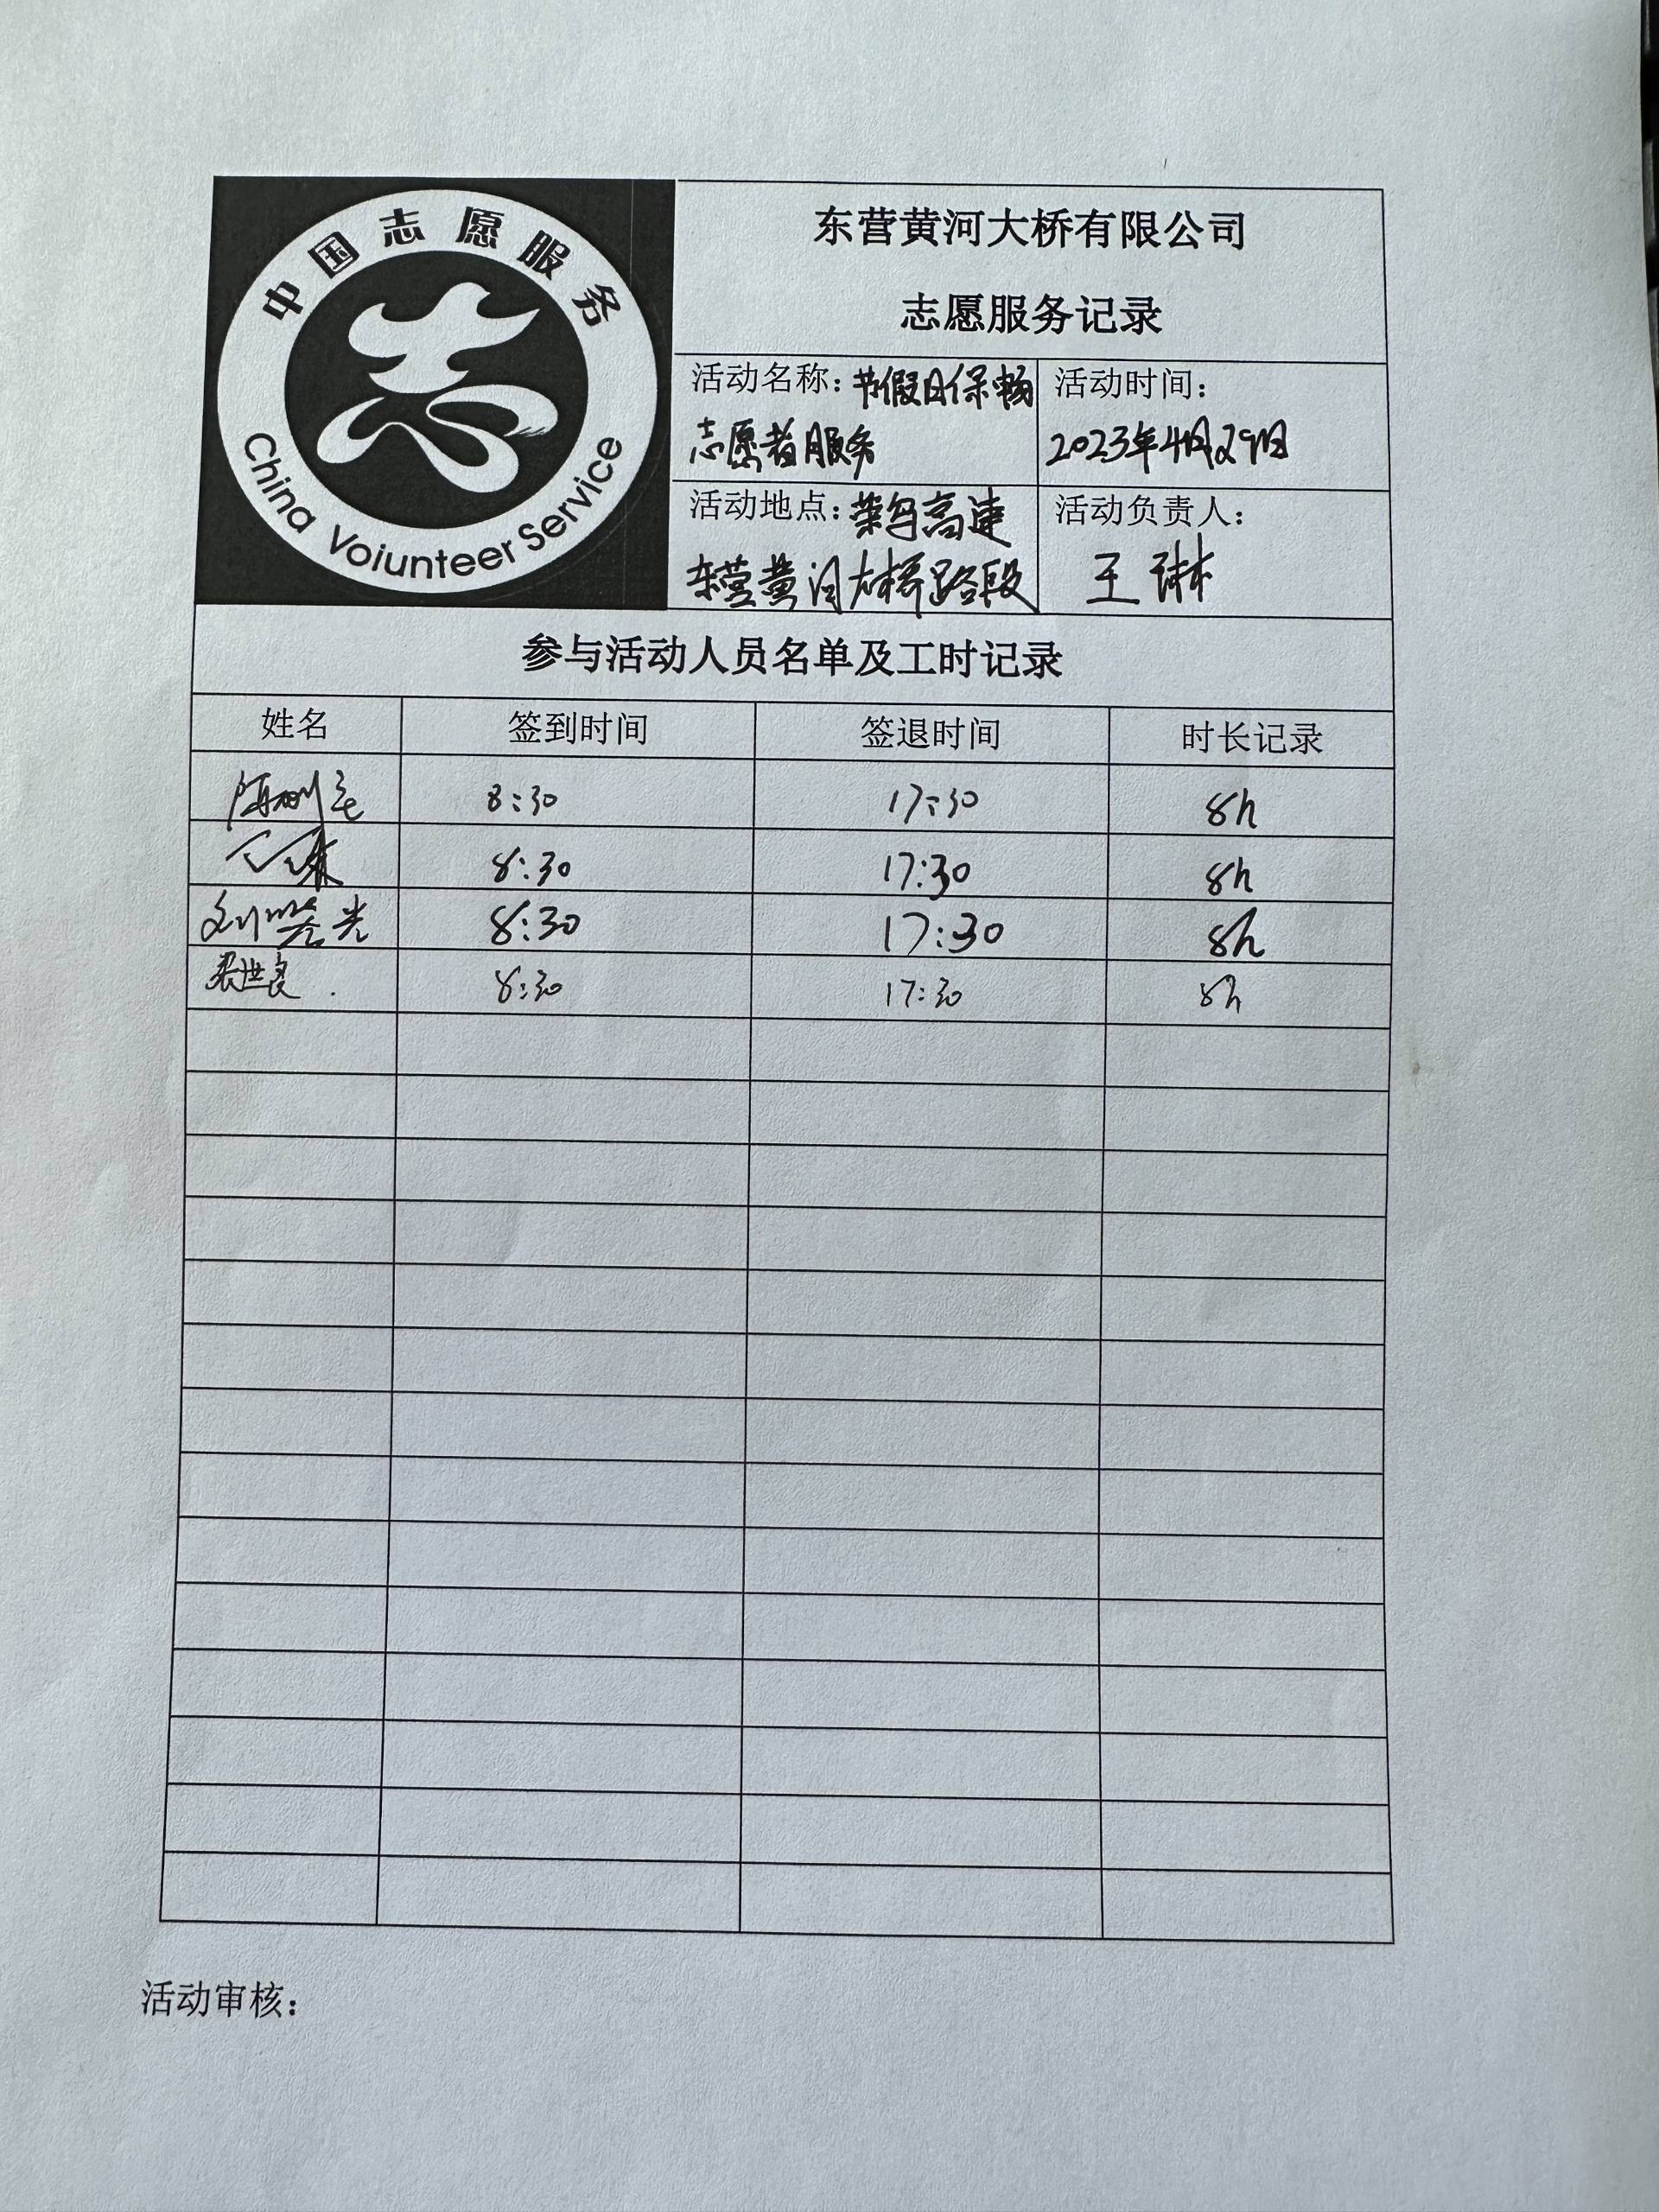 中国志愿服务
China Voiunteer Service
东营黄河大桥有限公司
志愿服务记录
活动名称：节假日保畅
志愿者服务
活动时间：
2023年4月29日
活动地点：荣乌高速
东营黄河大桥路段
活动负责人：
王琳
参与活动人员名单及工时记录
姓名 签到时间 签退时间 时长记录
8:30 17:30 8h
8:30 17:30 8h
8:30 17:30 8h
梁世良 8:30 17:30 8h
活动审核：